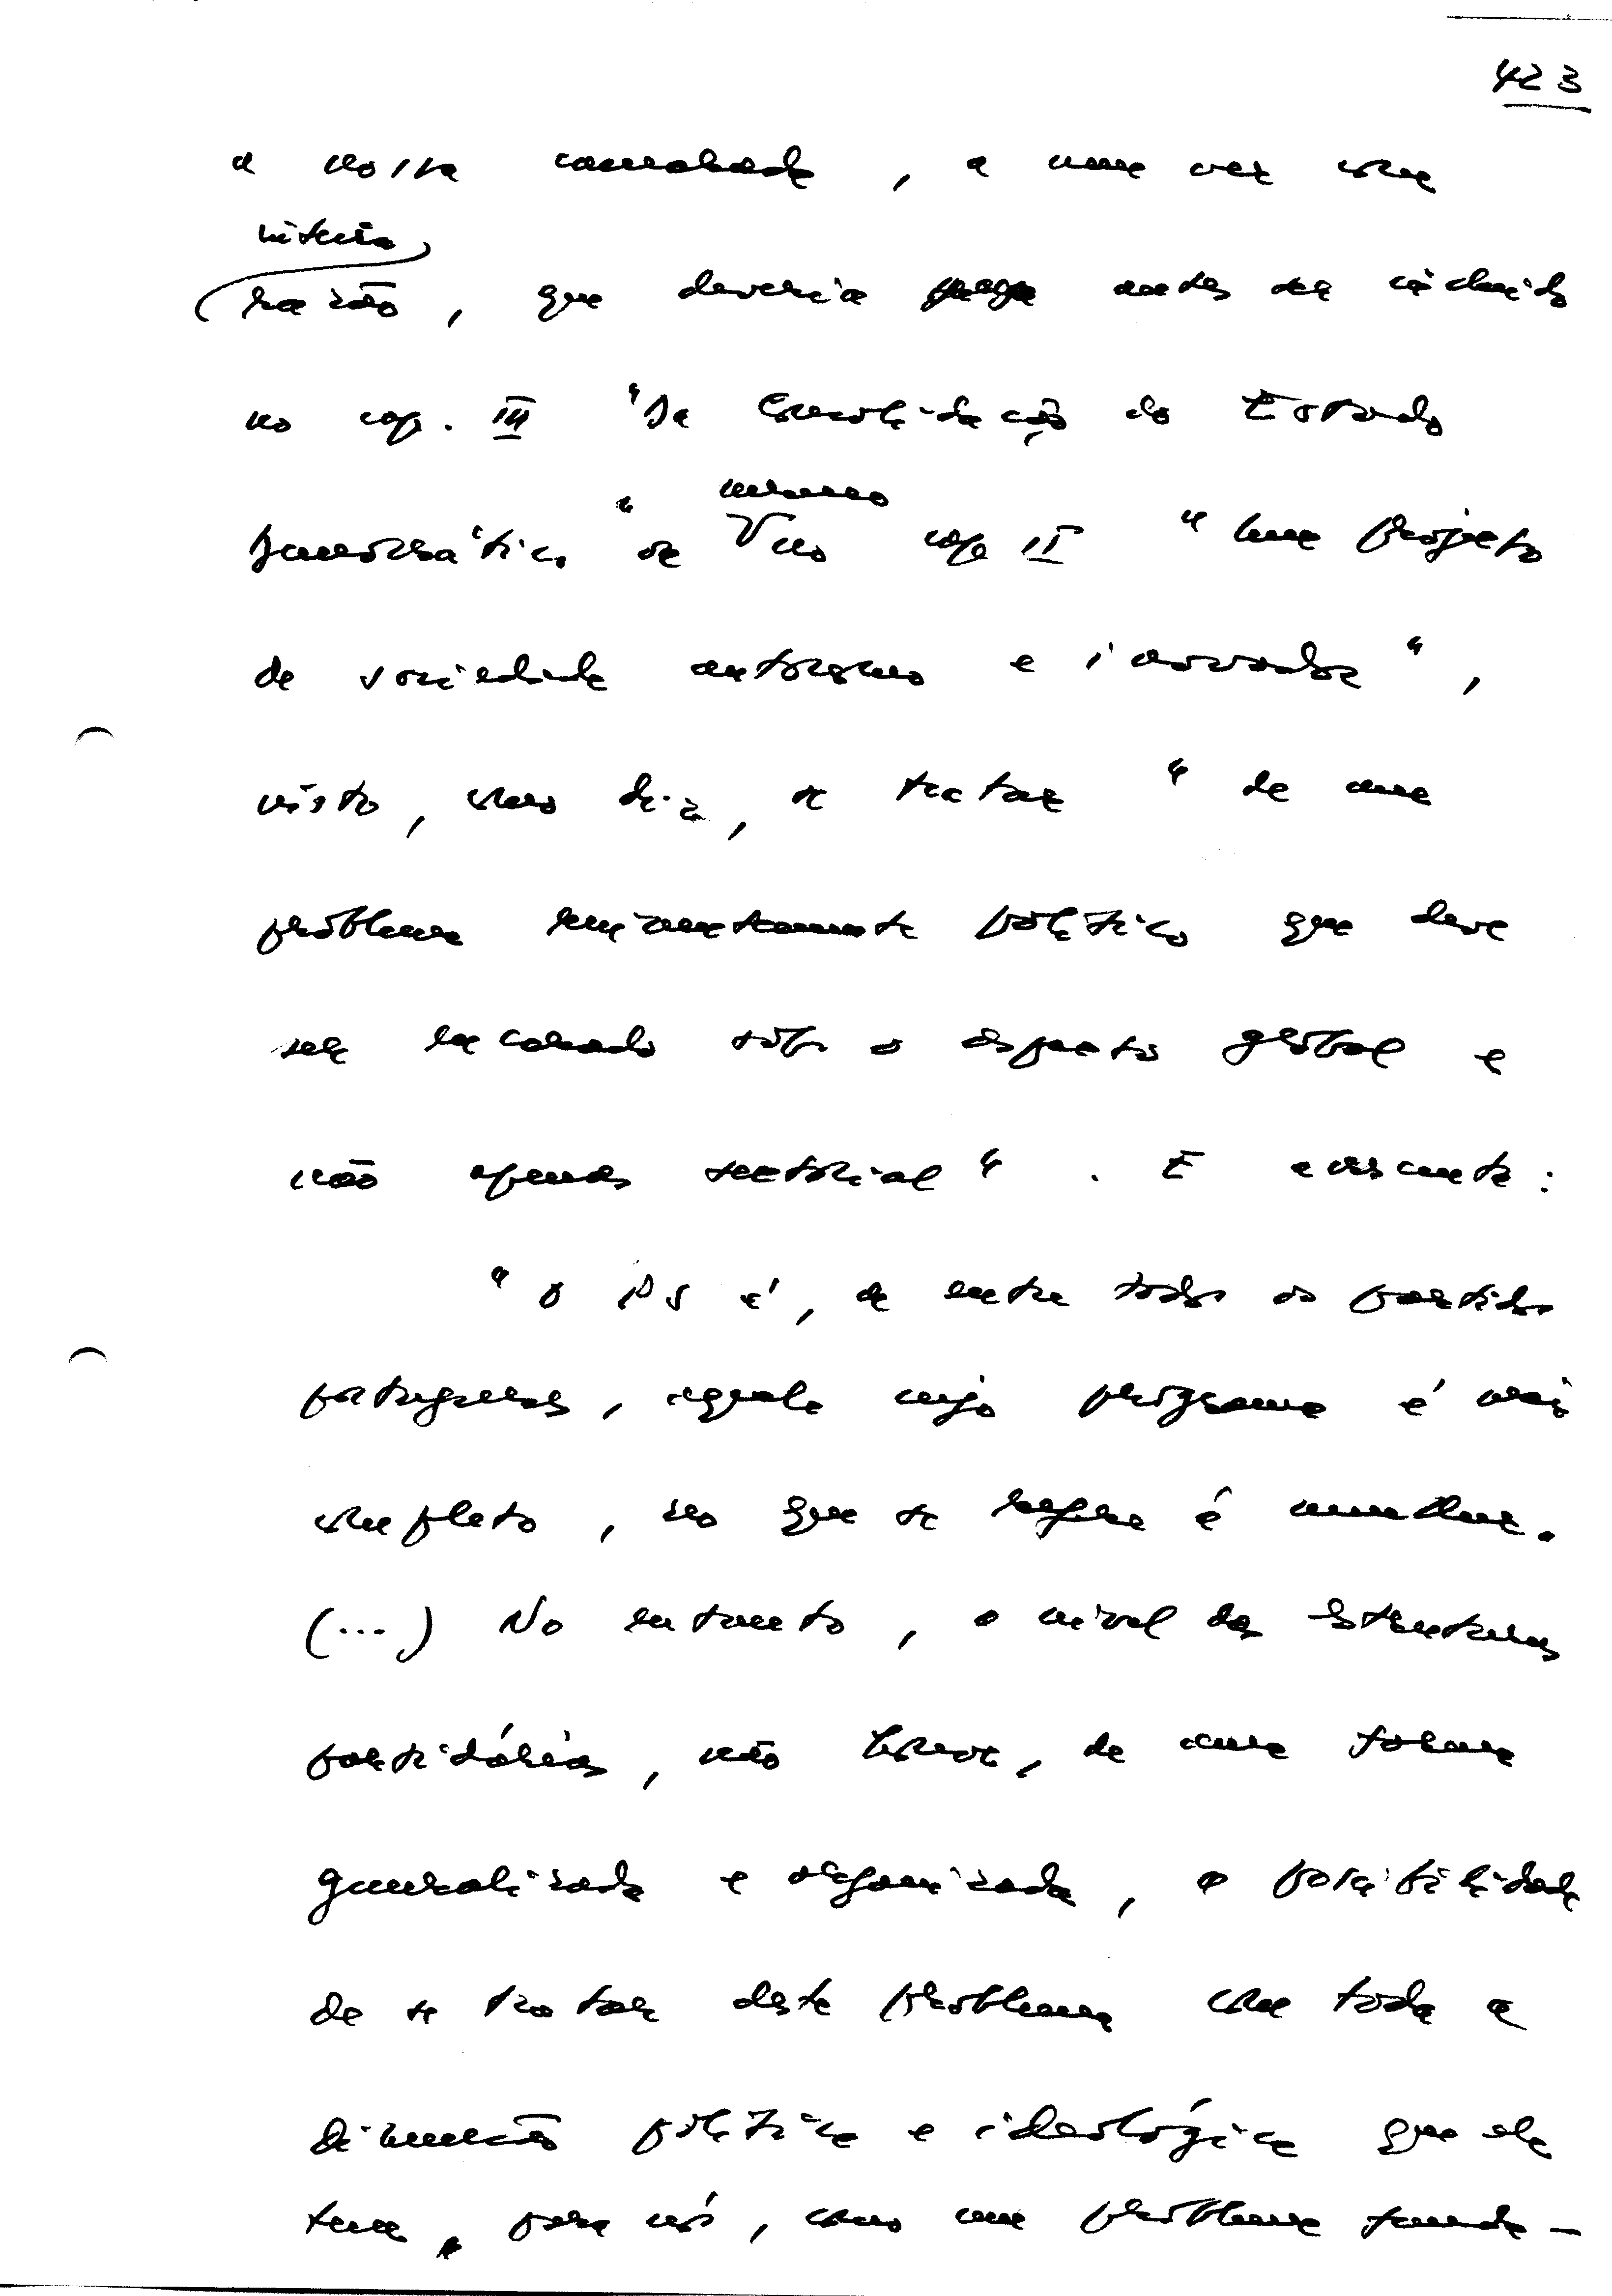 423
a nossa camarada, a meu ver com
inteira
razão, que deveria antes ser incluído
no cap. III "Da Consolidação do Estado
mesmo
Democrático" ou no cap II "Um Projecto
de sociedade autónomo e inovador",
visto, como diz, se tratar "de um
problema eminentemente político que deve
ser encarado sob o aspecto global e
não apenas sectorial". E acrescenta:
"O PS é, de entre todos os partidos
portugueses, aquele cujo programa é mais
completo, no que se refere à mulher.
(...) No entanto, a nível das estruturas
partidárias, não houve, de uma forma
generalizada e organizada, a possibilidade
de se tratar deste problema com toda a
dimensão política e ideológica que ele
tem, para nós, como um problema funda-